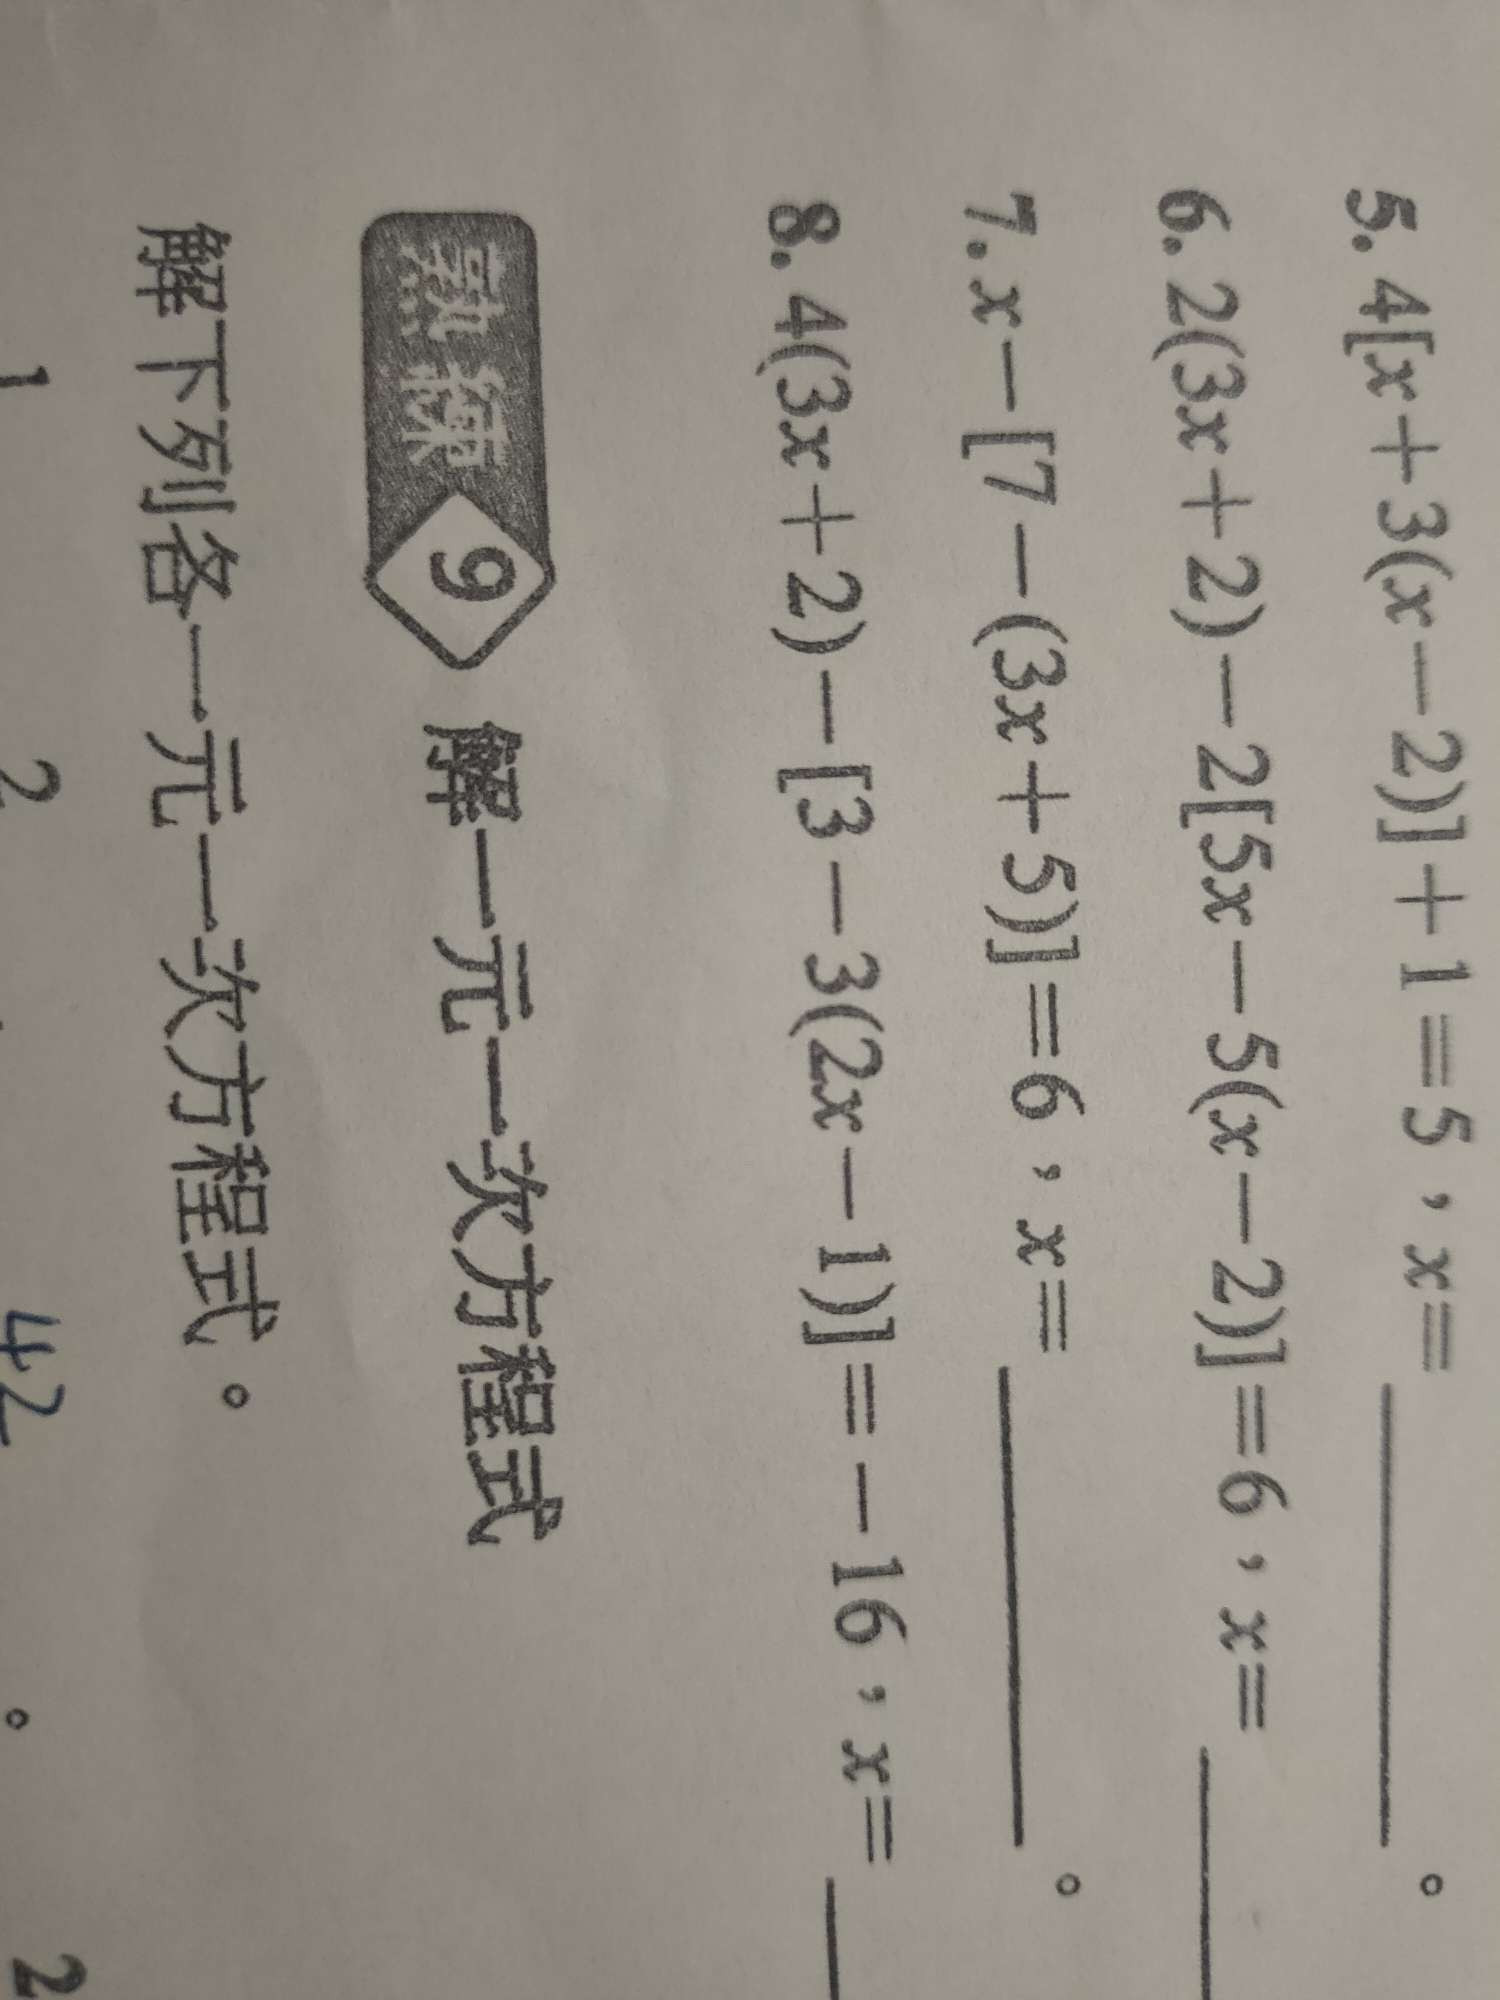 5. 4[x＋3(x－2)]＋1＝5，x＝＿＿＿＿。
6. 2(3x＋2)－2[5x－5(x－2)]＝6，x＝＿＿
7. x－[7－(3x＋5)]＝6，x＝＿＿＿＿。
8. 4(3x＋2)－[3－3(2x－1)]＝－16，x＝＿
熟練 9 解一元一次方程式
解下列各一元一次方程式。
1 2 42 。 2